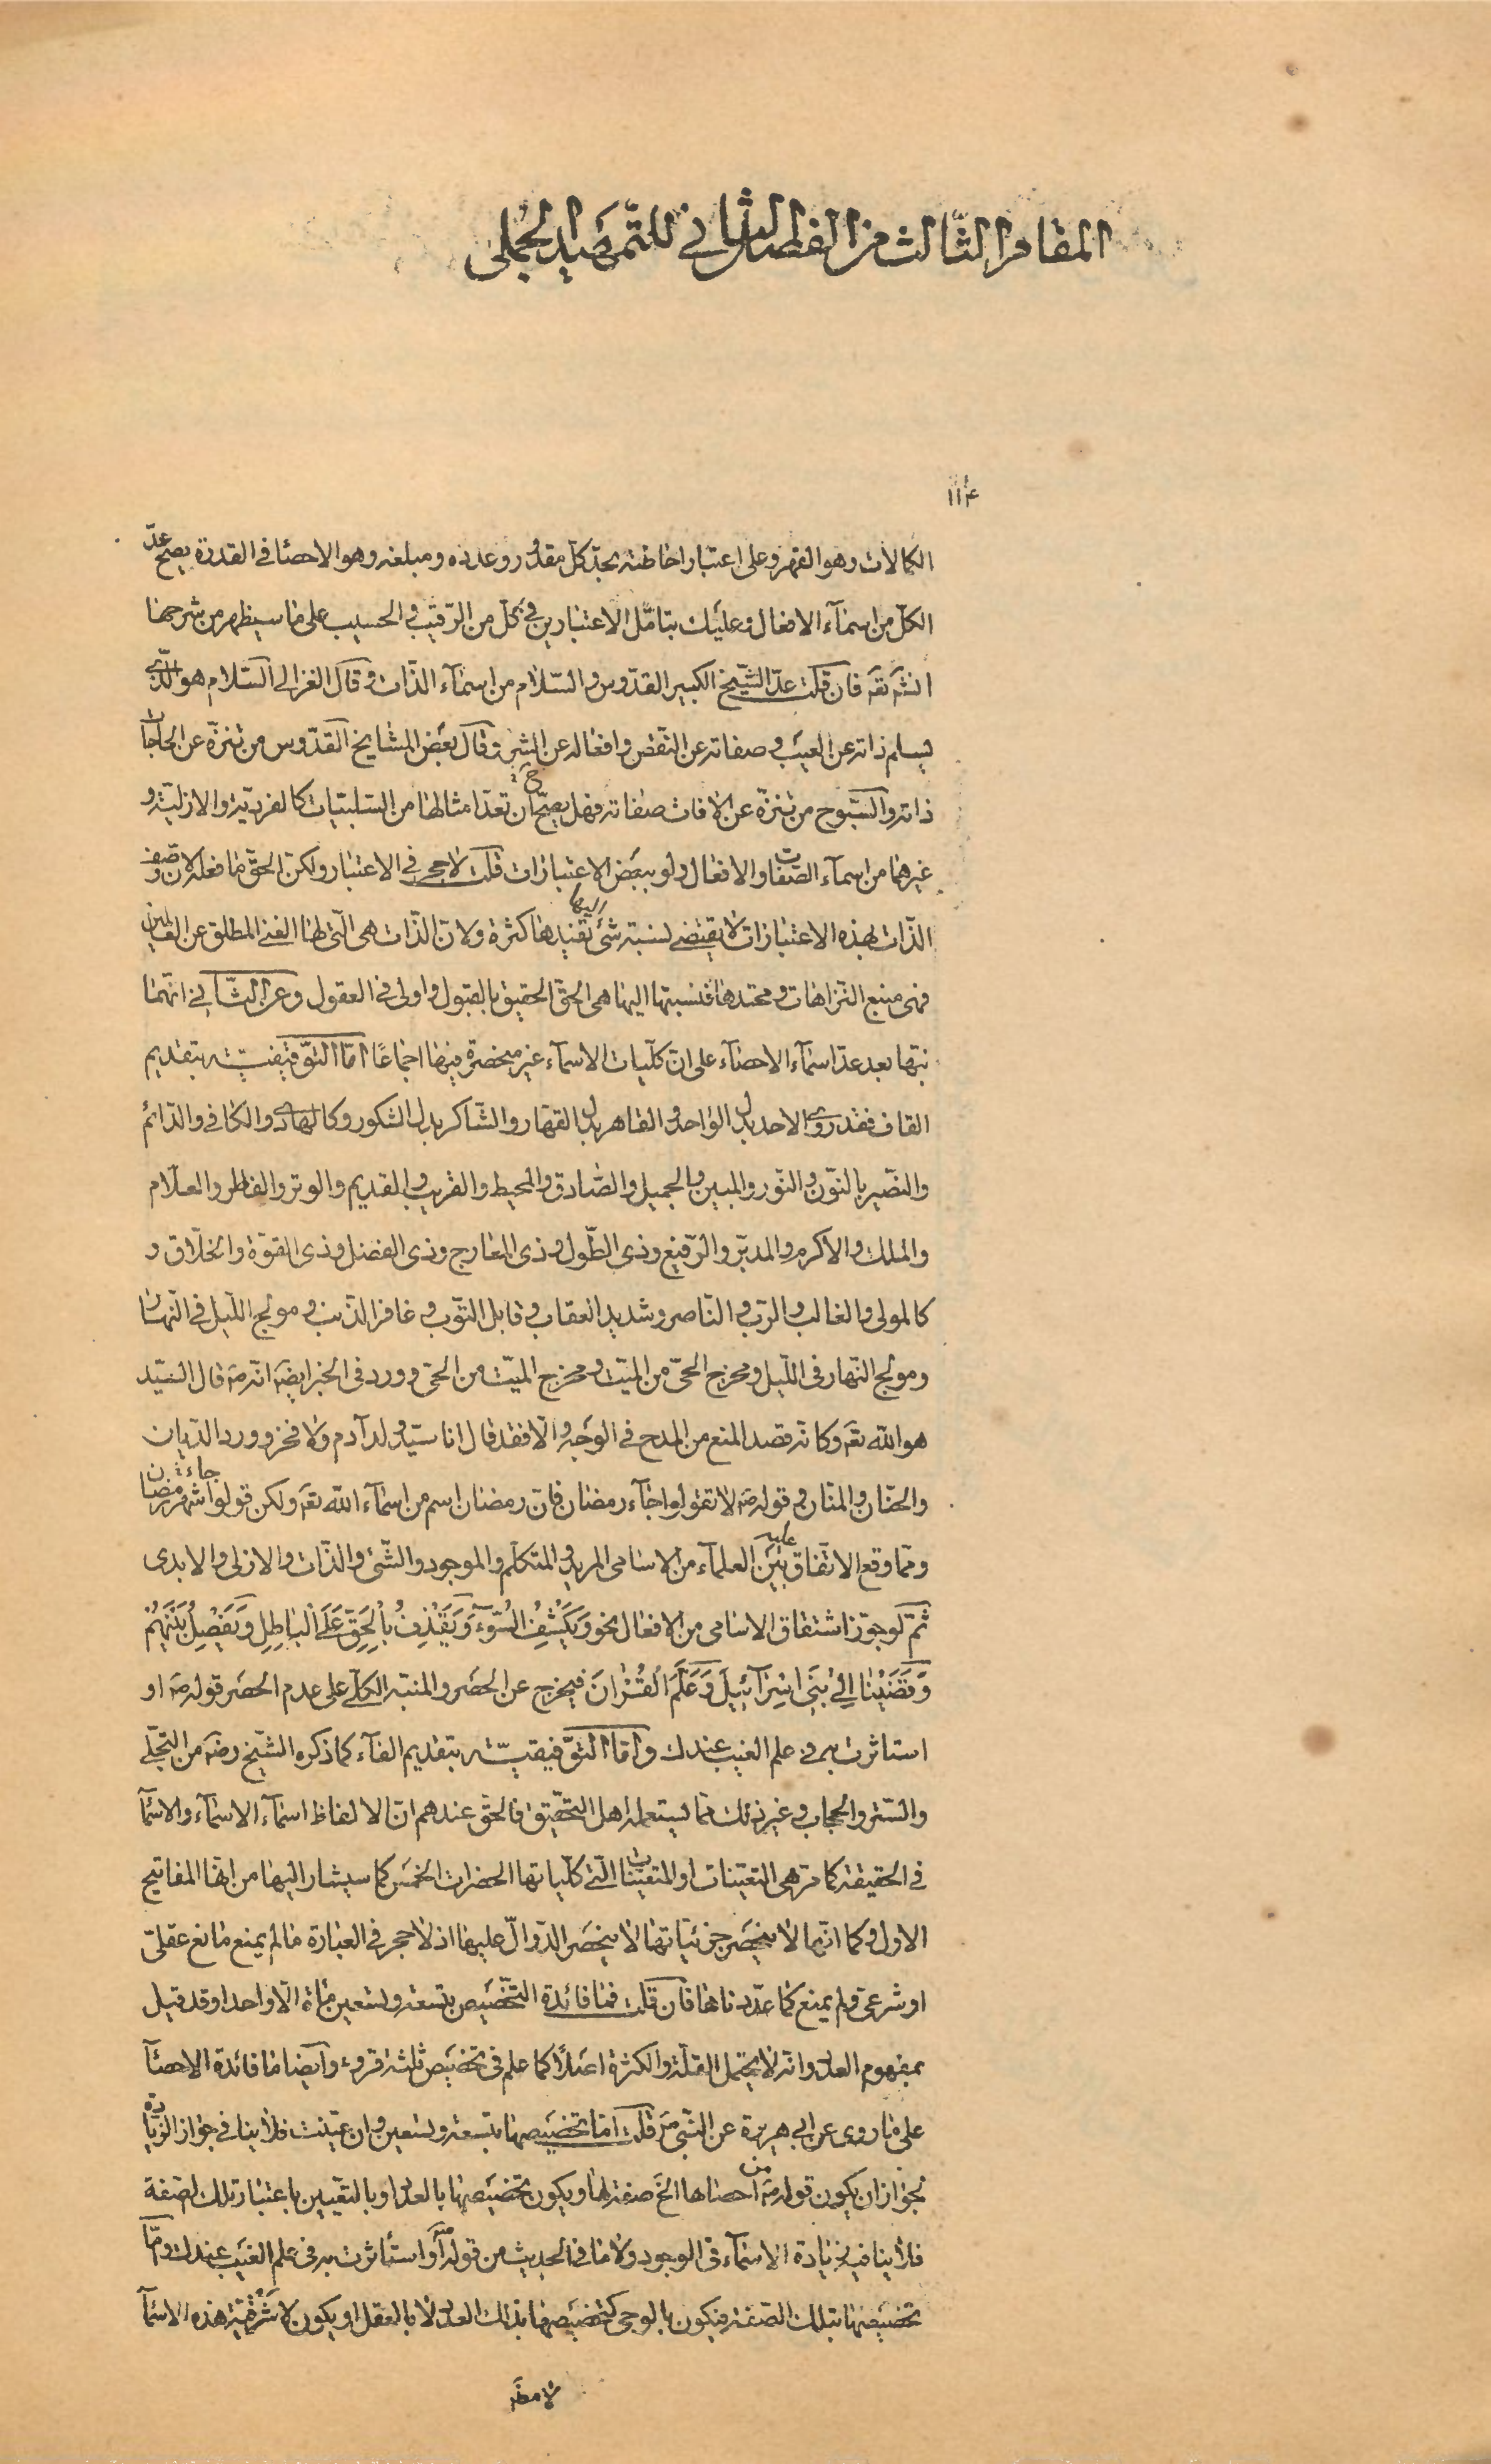 المقام الثالث من الفصل الثانى للتمهيد الجملى
١١۴
الكمالات وهو القهر وعلى اعتبار احاطته بحد كل مقدور وعدده ومبلغه وهو الاحصا فى القدرة يصح عدّ
الكل من اسمآء الافعال وعليك بتامّل الاعتبارين فى كل من الرّقيب والحسيب على ما سيظهر من شرحهما
انشَ تعَ فان قلت عدّ الشّيخ الكبير القدّوس والسّلام من اسمآء الذّات وقال الغزالى السّلام هو الّذى
يسلم ذاته عن العيب وصفاته عن النّقص وافعاله عن الشر وقال بعض المشايخ القدّوس من تنزّه عن الحاجات
ذاته والسّبّوح من تنزّه عن الافات صفاته فهل يصحّ ح ان تعدّ امثالها من السّلبيّات كالفرديّة والازليّة و
غيرهما من اسمآء الصّفات والافعال ولو ببعض الاعتبارات قلت لا حجر فى الاعتبار ولكن الحقّ ما فعله لان وصف
الذّات بهذه الاعتبارات لا يقتضى لنسبته شئ اليها يفيدها كثرة ولان الذّات هى الّتى لها الغنى المطلق عن العالمين
فهى منبع النّزاهات ومحتدها فنسبتها اليها هى الحقّ الحقيق بالقبول واولى فى العقول وعن الثّانى انهما
نبّها بعد عدّ اسمآء الاحصآء على ان كليات الاسمآء غير منحصرة فيها اجماعًا امّا التوّقيفيّة بتقديم
القاف فقد روى الاحد بدل الواحد والقاهر بدل القهّار والشّاكر بدل الشكور وكالهادى والكافى والدّائم
والنّصير بالنّون والنّور والمبين والجميل والصّادق والمحيط والقريب والقديم والوتر والفاطر والعلّام
والملك والاكرم والمدبّر والرّفيع وذى الطّول وذى المعارج وذى الفضل وذى القوّة والخلّاق و
كالمولى والغالب والربّ والنّاصر وشديد العقاب وقابل التّوب وغافر الذّنب ومولج اللّيل فى النّهار
ومولج النّهار فى اللّيل ومخرج الحىّ من الميّت ومخرج الميّت من الحىّ وورد فى الخبر ايضَ انّه صَ قال السّيّد
هو الله تعَ وكانّه قصد المنع من المدح فى الوجه والّا فقد قال انا سيّد ولد آدم ولا فخر وورد الدّيان
والحنّان والمنّان وقوله صَ لا تقولوا جآء رمضان فان رمضان اسم من اسمآء الله تعَ ولكن قولوا جاء شهر رمضان
وممّا وقع الاتّفاق عليه بين العلمآء من الاسامى المريد والمتكلّم والموجود والشّئ والذّات والازلى والابدى
ثمّ لو جوّز اشتقاق الاسامى من الافعال نحو وَيَكْشِفُ السُّوٓءَ وَيَقْذِفُ بِالْحَقِّ عَلَى الْبَاطِلِ وَيَفْصِلُ بَيْنَهُمْ
وَقَضَيْنَا اِلٰى بَنِى اِسْرٰآئِيلَ وَعَلَّمَ الْقُرْاٰنَ فيخرج عن الحصر والمنبّه الكلّى على عدم الحصر قوله صَ او
استاثرت به فى علم الغيب عندك وامّا التوّفيقيّة بتقديم الفآء كما ذكره الشّيخ رضَ من التّجلّى
والسّتر والحجاب وغير ذلك ممّا يستعمله اهل التّحقيق فالحقّ عندهم انّ الالفاظ اسمآء الاسمآء والاسمآ
فى الحقيقة كما مرّ هى التعيّنات او المتعيّنات الّتى كلّياتها الحضرات الخمس كما سيشار اليها من انّها المفاتيح
الاول وكما انّها لا ينحصر جزئياتها لا ينحصر الدّوالّ عليها اذ لا حجر فى العبارة ما لم يمنع مانع عقلىّ
او شرعى ولم يمنع كما عدّدناها فان قلت فما فائدة التّخصيص بتسعة وتسعين مائة الّا واحدا وقد قيل
بمفهوم العدد وانّه لا يحتمل القلّة والكثرة اصلًا كما علم فى تخصيص ثلثة قروء وايضا ما فائدة الاحصآ
على ما روى عن ابى هريرة عن النّبى صَ قلت امّا تخصيصها بتسعة وتسعين وان عيّنت فلا ينافى جواز الزّيادة
لجواز ان يكون قوله صَ من احصاها الخَ صفة لها ويكون تخصيصها بالعدد او بالتعيين باعتبار تلك الصّفة
فلا ينافيه زيادة الاسمآء فى الوجود ولا ما فى الحديث من قوله صَ او استأثرت به فى علم الغيب عندك وامّا
تخصيصها بتلك الصّفة فيكون بالوحى كتخصيصها بذلك العدد لا بالعقل او يكون لاشرفيّة هذه الاسمآ